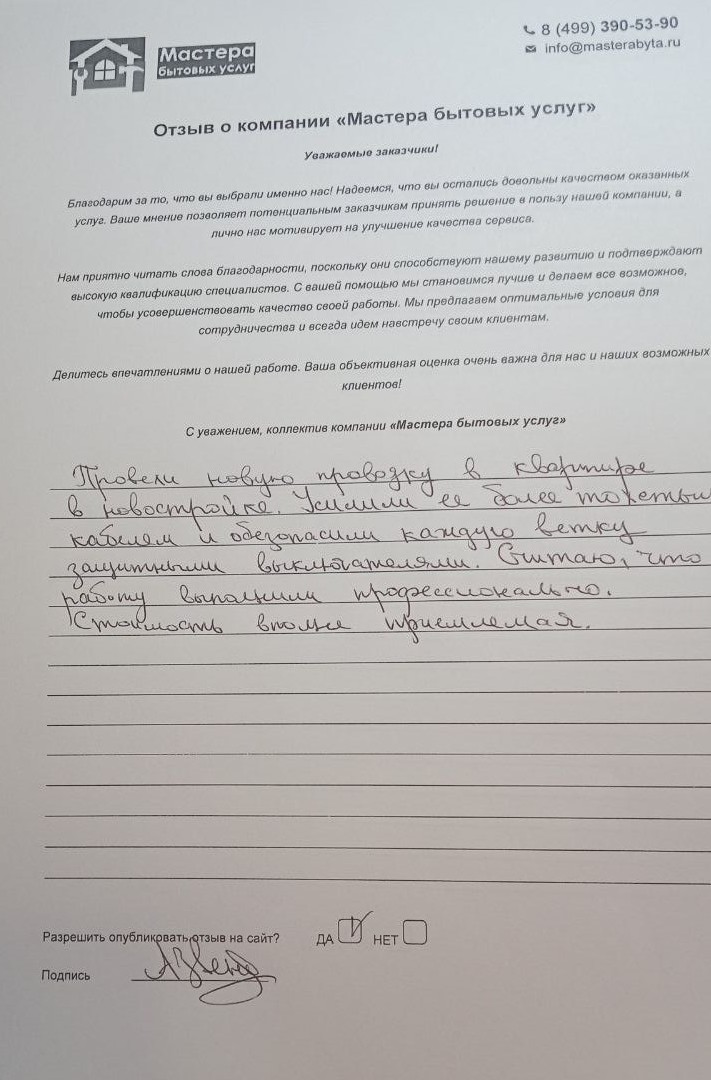 Мастера
бытовых услуг
8 (499) 390-53-90
info@masterabyta.ru
Отзыв о компании «Мастера бытовых услуг»
Уважаемые заказчики!
Благодарим за то, что вы выбрали именно нас! Надеемся, что вы остались довольны качеством оказанных
услуг. Ваше мнение позволяет потенциальным заказчикам принять решение в пользу нашей компании, а
лично нас мотивирует на улучшение качества сервиса.
Нам приятно читать слова благодарности, поскольку они способствуют нашему развитию и подтверждают
высокую квалификацию специалистов. С вашей помощью мы становимся лучше и делаем все возможное,
чтобы усовершенствовать качество своей работы. Мы предлагаем оптимальные условия для
сотрудничества и всегда идем навстречу своим клиентам.
Делитесь впечатлениями о нашей работе. Ваша объективная оценка очень важна для нас и наших возможных
клиентов!
С уважением, коллектив компании «Мастера бытовых услуг»
Провели новую проводку в квартире
в новостройке. Усилили ее более
кабелем и обезопасили каждую ветку
защитными выключателями. Считаю, что
работу выполнили профессионально.
Стоимость вполне приемлемая.
Разрешить опубликовать отзыв на сайт? ДА НЕТ
Подпись